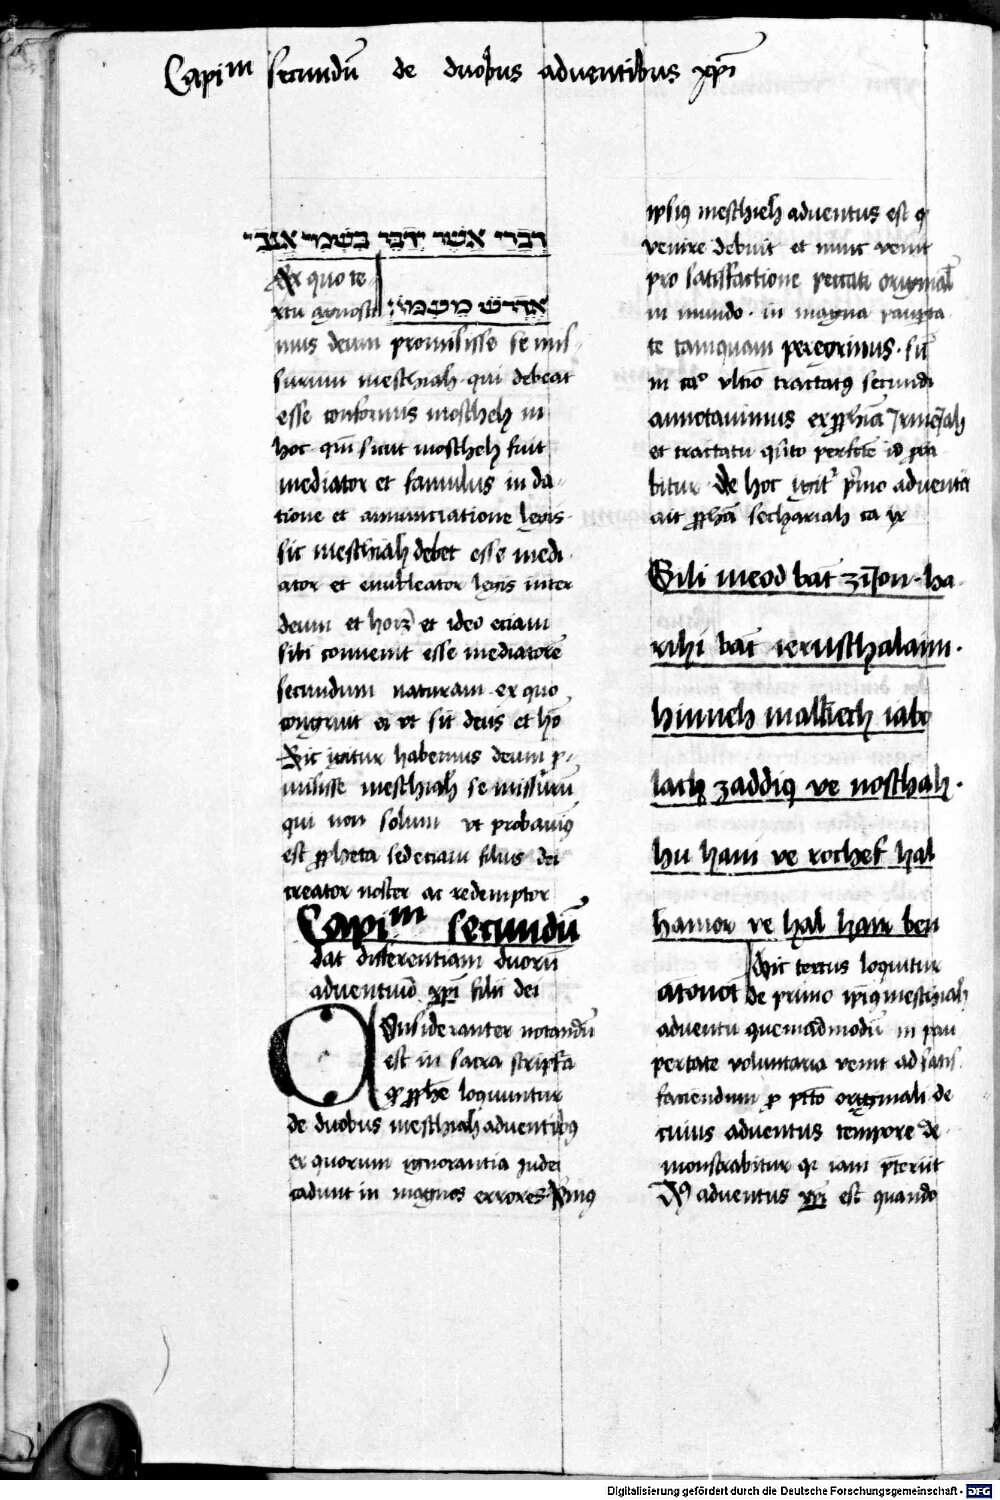 Capim secundū de duobus adventibus xpī
דברי אשר ידבר בשמי אנכי
Ex quo te
אדרש מעמו:
xtu agnosci
mus deum promisisse se mis-
surum meschiah qui debeat
esse conformis moscheh in
hoc qm̄ sicut moscheh fuit
mediator et famulus in da-
tione et annunciatione legis
sic meschiah debet esse medi
ator et enucleator legis inter
deum et hoīz et ideo eciam
sibi convenit esse mediatorē
secundum naturam ex quo
congruit ei vt sit deus et hō
Sic igitur habemus deum p-
misisse meschiah se missurū
qui non solum vt probavimꝯ
est ꝓpheta sed eciam filius dei
creator noster ac redemptor
Capim secundū
dat differentiam duorū
adventuū xpī filii dei
Onsideranter notandū
est in sacra scriptā
ꝙ ꝓphē loquuntur
de duobus meschiah adventibꝯ
ex quorum ignorantia iudei
cadunt in magnos errores Prim9
ipsiꝯ meschieh adventus est q
venire debuit et nunc venit
pro satisfactione peccati original̄
in mundo in magna paupta
te tamquam peregrinus sic̄
in cao vltīo tractatꝯ secundi
annotavimus ex ꝓphīa Jrmejah
et tractatu qn̄to perfctē id ꝓba
bitur de hoc igit̄ pmo adventu
ait ꝓphā sechariah ca ix
Gili meod bat zijon ha
rihi bat ieruschalaim
hinneh malkech iabo
lach zaddiq ve noschah
hu hani ve rochef hal
hamor ve hal hair ben
Hic textus loquitur
atonot de primo ipīꝯ meschiah
adventu quemadmodū in pau
pertate voluntaria venit ad satis
faciendum ꝓ pctō originali de
cuius adventus tempore de
monstrabitur qꝛ iam p̄teriit
Aꝯ adventus xpī est quando